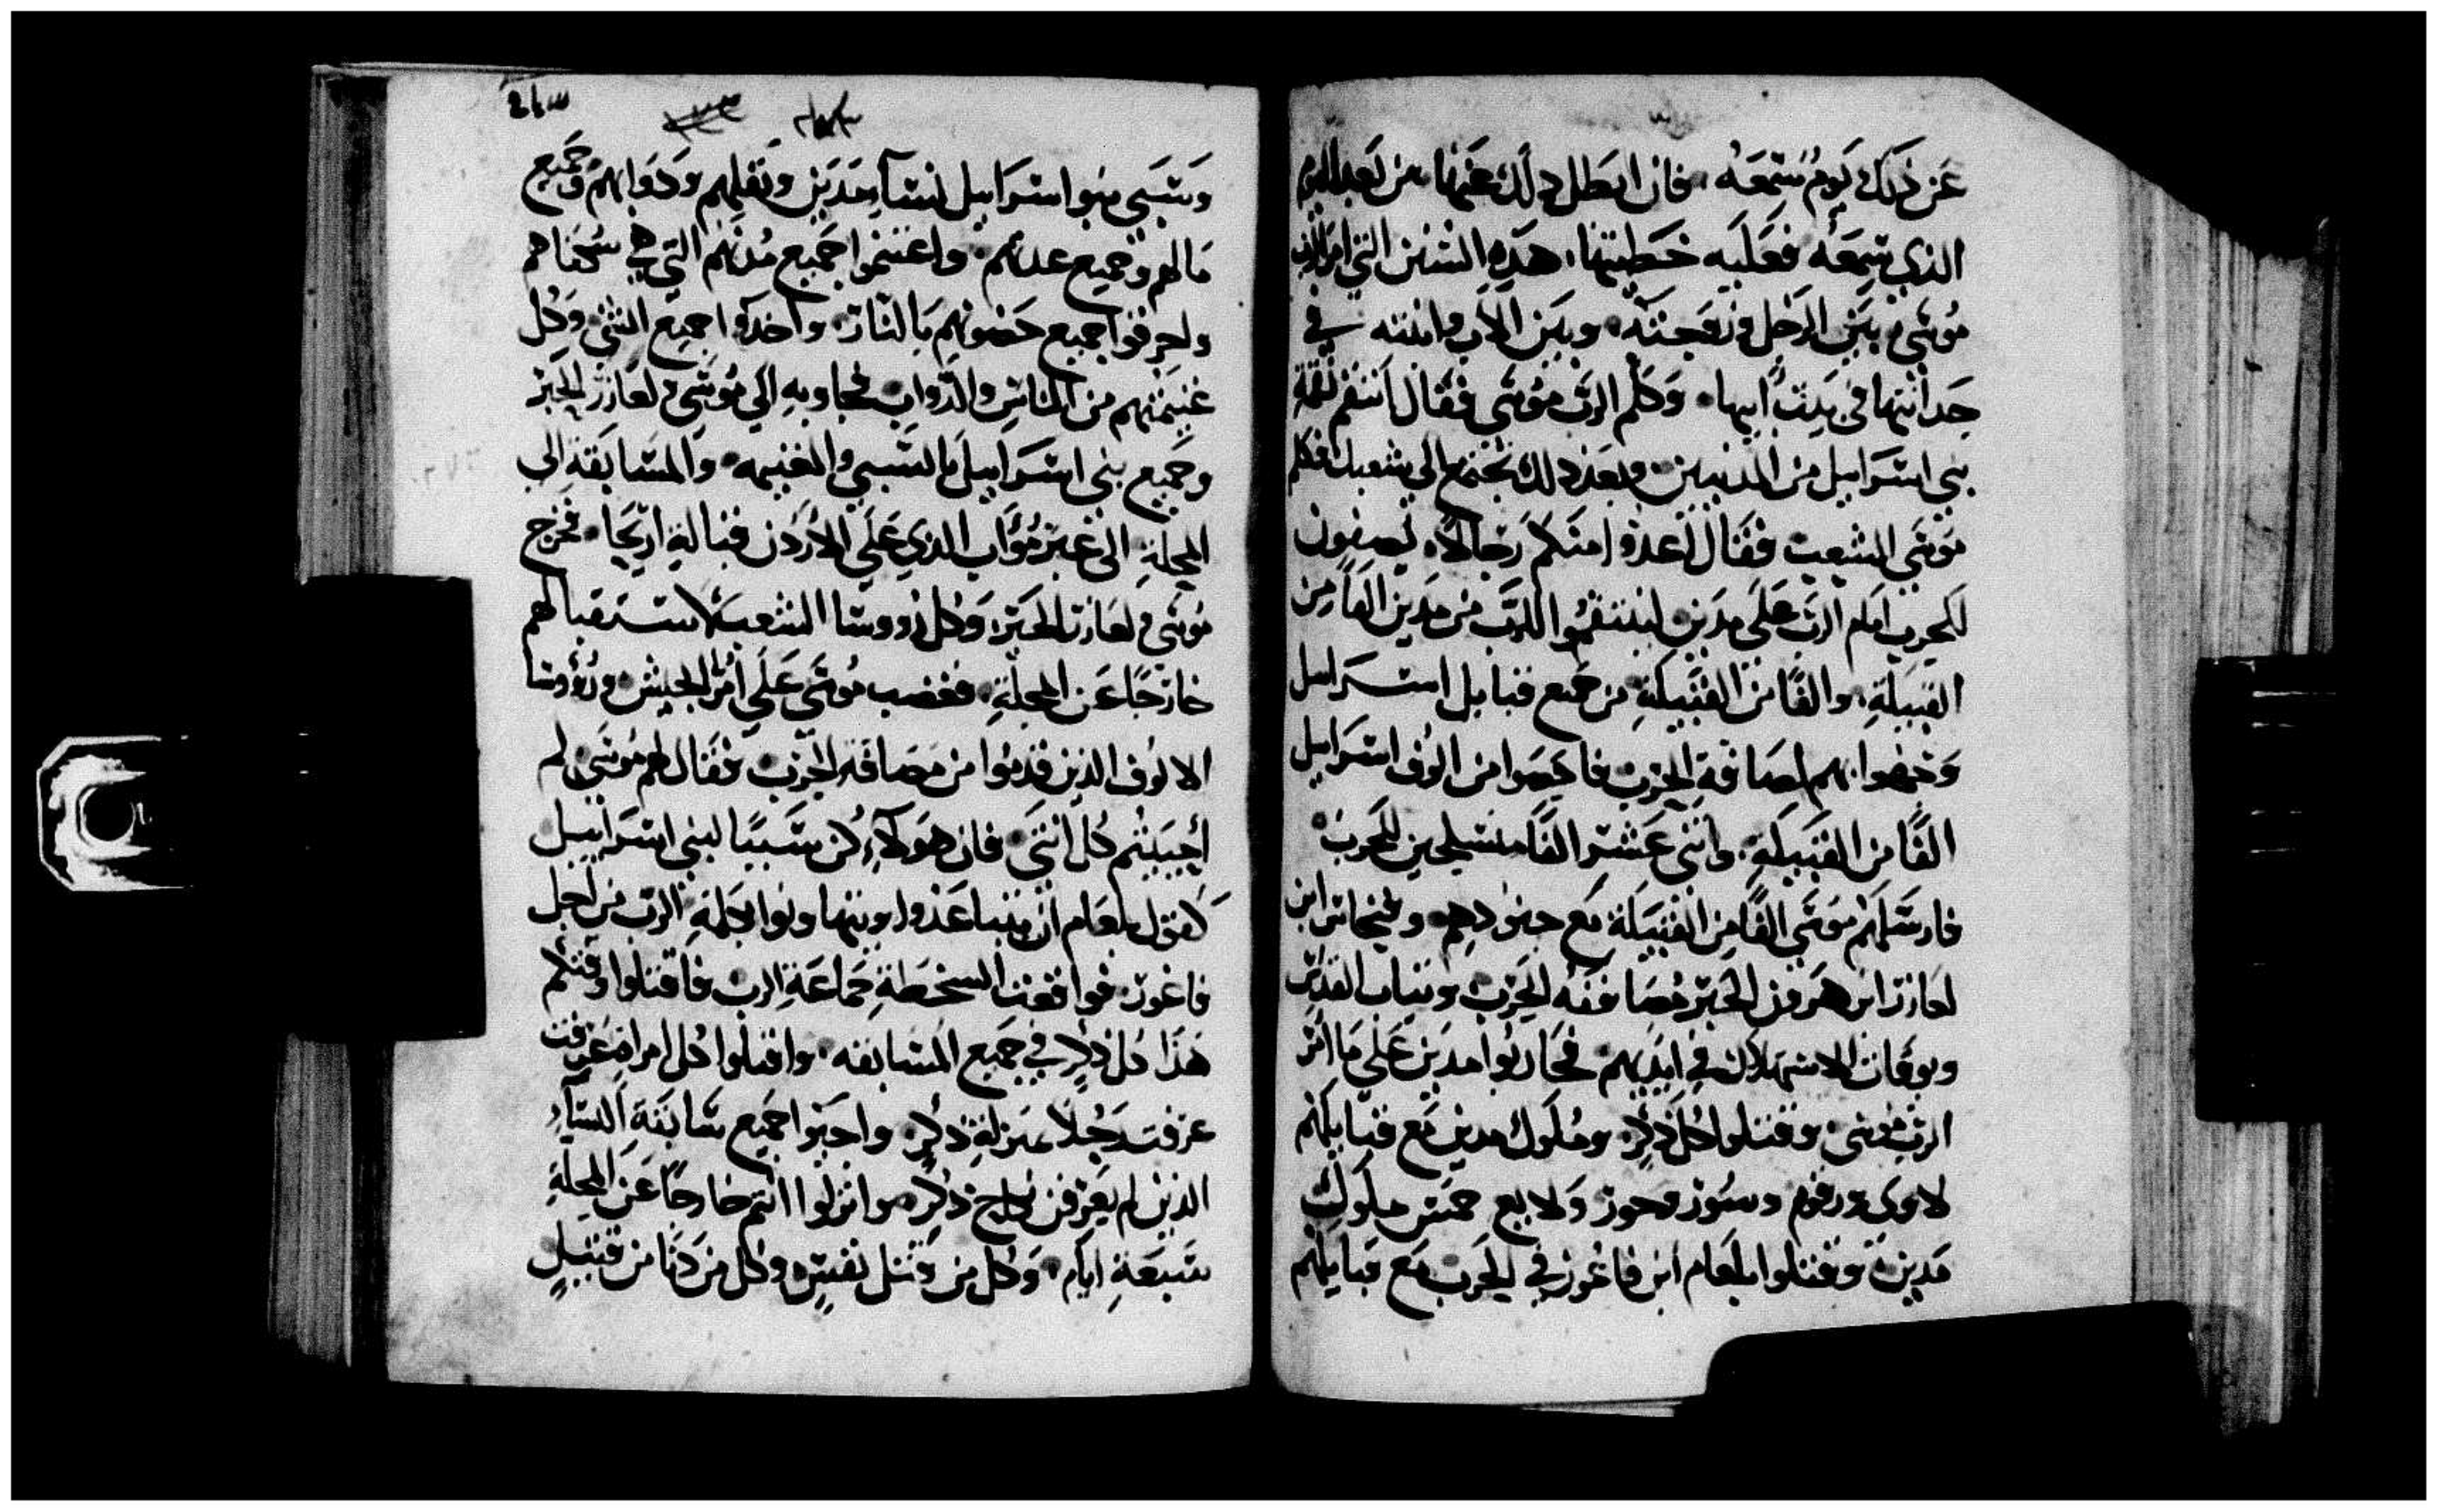 عن ذلك يوم سمعه. فان ابطل ذلك عنها من بعد اليوم
الذي سمعه فعليه خطيتها. هذه السنن التي امر الرب
موسى بين الرجل وزوجته. وبين الاب وابنته في
حداثتها في بيت ابيها. وكلم الرب موسى فقال انتقم نقمة
بني اسرايل من المدينيين وبعد ذلك تجتمع الى شعبك فكلم
موسى الشعب فقال اعدوا منكم رجالا يصفون
للحرب امام الرب على مدين لينتقموا للرب من مدين الفا من
القبيلة. والفا من القبيلة من جميع قبايل اسرايل
وجهوا بهم لمصافة الحرب فاحصوا من الوف اسرايل
الفا من القبيلة. واثنى عشر الفا متسلحين للحرب
فارسلهم موسى الفا من القبيلة مع جنودهم وفينحاس ابن
لعازر ابن هرون الحبر مصاففه الحرب وثياب القدس
وبوقات الاستهلال في ايديهم فحاربوا مدين على ما امر
الرب موسى وقتلوا كل ذكر وملوك مدين مع قبايلهم
لاوى ورقوم وسور وحور ولابع خمس ملوك
مدين وقتلوا بلعام ابن فاغور في الحرب مع قبايلهم
وسبى بنوا اسرايل نسآ مدين وثقلهم ودوابهم وجميع
مالهم وجميع عددهم. واغتنموا جميع مدنهم التي في سكناهم
واحرقوا جميع حصونهم بالنار. واخذوا جميع الشي وكل
غنيمتهم من الناس والدواب فجاوا به الى موسى ولعازر الحبر
وجميع بني اسرايل بالسبي والغنيمه والمسابقة الى
المحلة الى غبر مؤاب الذي على الاردن قبالة اريحا. فخرج
موسى ولعازر الحبر وكل رووسا الشعب لاستقبالهم
خارجا عن المحلة. فغضب موسى على امر الجيش ورؤوسا
الالوف الذين قدموا من مصافة الحرب فقال لهم موسى لم
أحييتم كل انثى فان هولآء كن سببا لبني اسرايل
كقول بلعام ان يتباعدوا ويتهاونوا بكلمة الرب من اجل
فاغور. فواقعت السخطة جماعة الرب فاقتلوا وقتكم
هذا كل ذكر في جميع المسابقه. واقتلوا كل امراة عرفت
عرفت رجلا بمنزلة ذكر. واحيوا جميع سابقة النسآء
الذين لم يعرفن زواج ذكر. وانزلوا انتم خارجا عن المحلة
سبعة ايام. وكل من قتل نفس وكل من دنا من قتيل